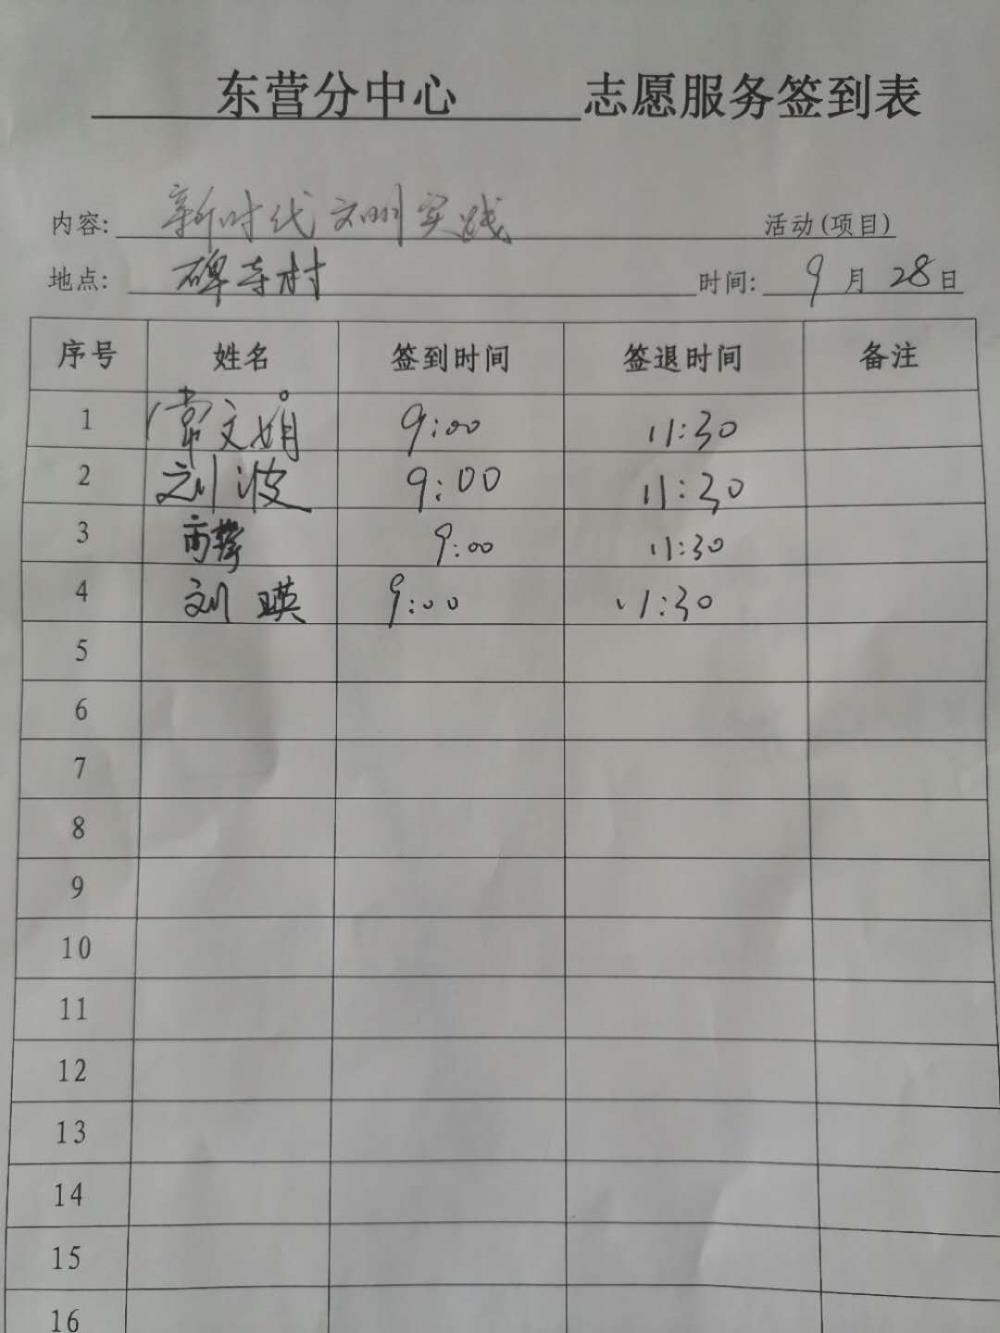 东营分中心 志愿服务签到表
内容: 新时代文明实践 活动(项目)
地点: 碑寺村 时间: 9月28日
序号 姓名 签到时间 签退时间 备注
1 常文娟 9:00 11:30
2 刘波 9:00 11:30
3 9:00 11:30
4 刘瑛 9:00 11:30
5
6
7
8
9
10
11
12
13
14
15
16